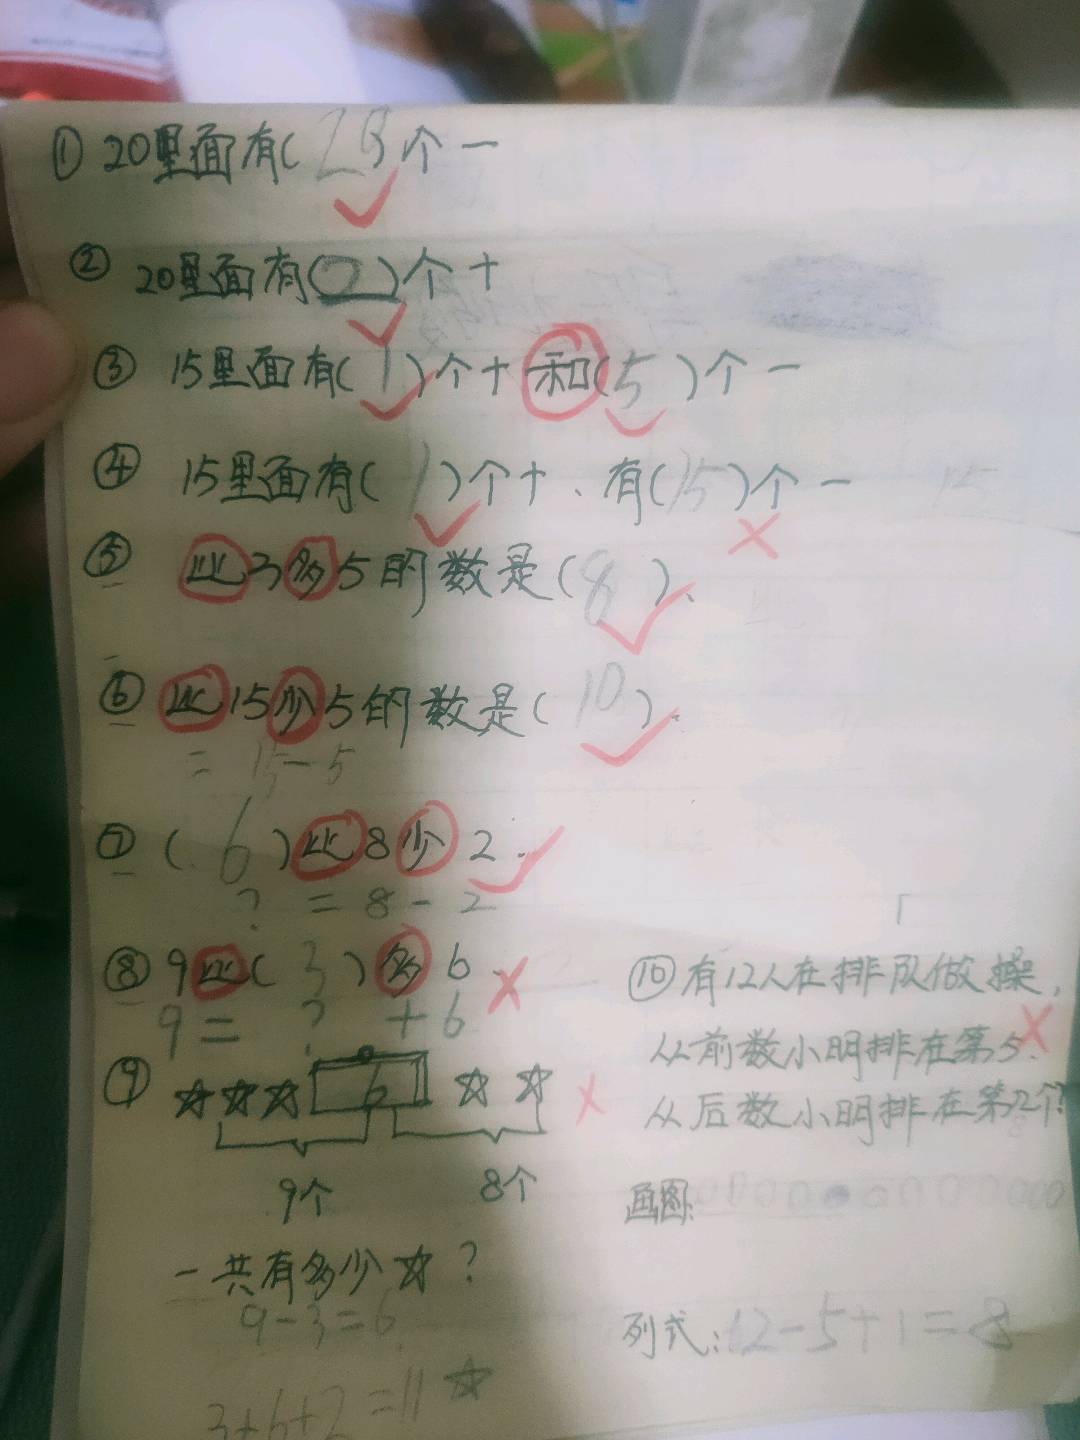 ① 20里面有( 20 个一
② 20里面有(2)个十
③ 15里面有(1)个十和(5)个一
④ 15里面有(1)个十、有(15)个一 15
⑤ 比3多5的数是(8)、
⑥ 比15少5的数是(10).
= 15-5
⑦ (6)比8少2.
? = 8-2
⑧ 9比(3)多6
9= ? +6
⑨ ☆☆☆ 6 ☆☆
9个 8个
一共有多少☆?
9-3=6
3+6+2=11☆
⑩有12人在排队做操,
从前数小明排在第5.
从后数小明排在第几个?
8
画图: 
列式: 12-5+1=8